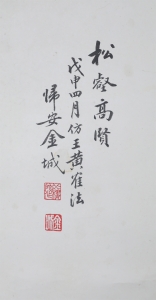 松壑高賢
戊申四月仿王黃崔法
歸安金城